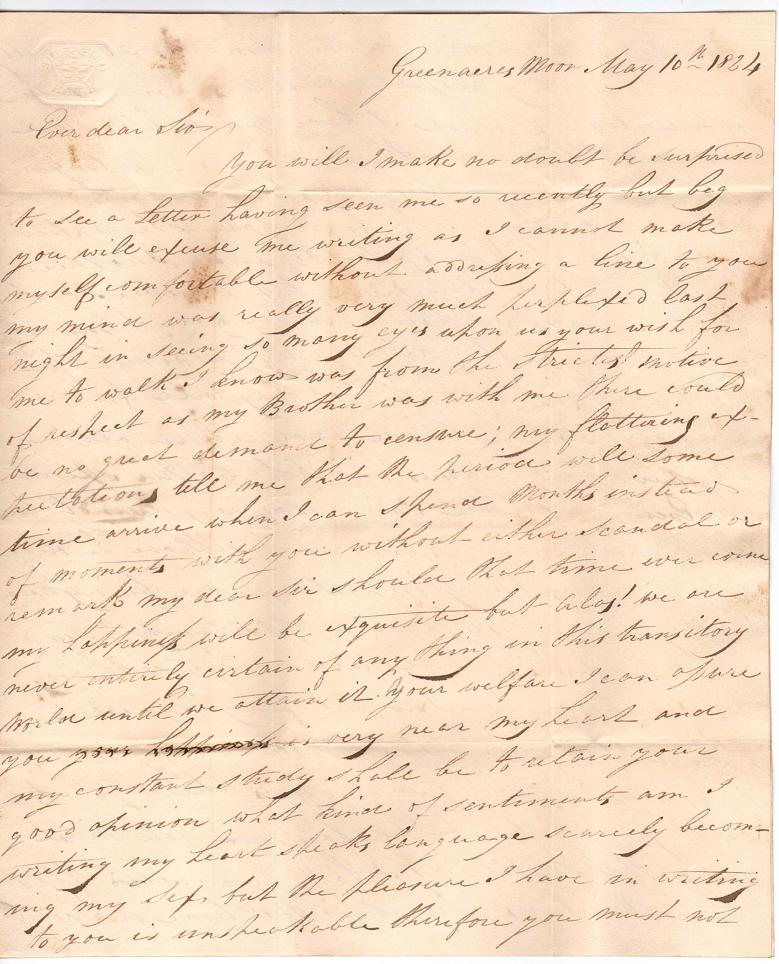 Greenacres Moor May 10th 1824
Ever dear Sir
you will I make no doubt be surprised
to see a Letter having seen me so recently but beg
you will excuse me writing as I cannot make
myself comfortable without addressing a line to you
my mind was really very much perplexed last
night in seeing so many eyes upon us your wish for
me to walk I know was from the strictest motive
of respect as my Brother was with me there could
be no great demand to censure; my flattering ex-
pectations tell me that the period will some
time arrive when I can spend Months instead
of moments with you without either scandal or
remark my dear Sir should that time ever come
my happiness will be exquisite but Alas! we are
never entirely certain of any thing in this transitory
World until we attain it your welfare I can assure
you your happiness is very near my heart and
my constant study shall be to retain your
good opinion what kind of sentiments am I
writing my heart speaks language scarcely becom-
ing my sex, but the pleasure I have in writing
to you is unspeakable therefore you must not